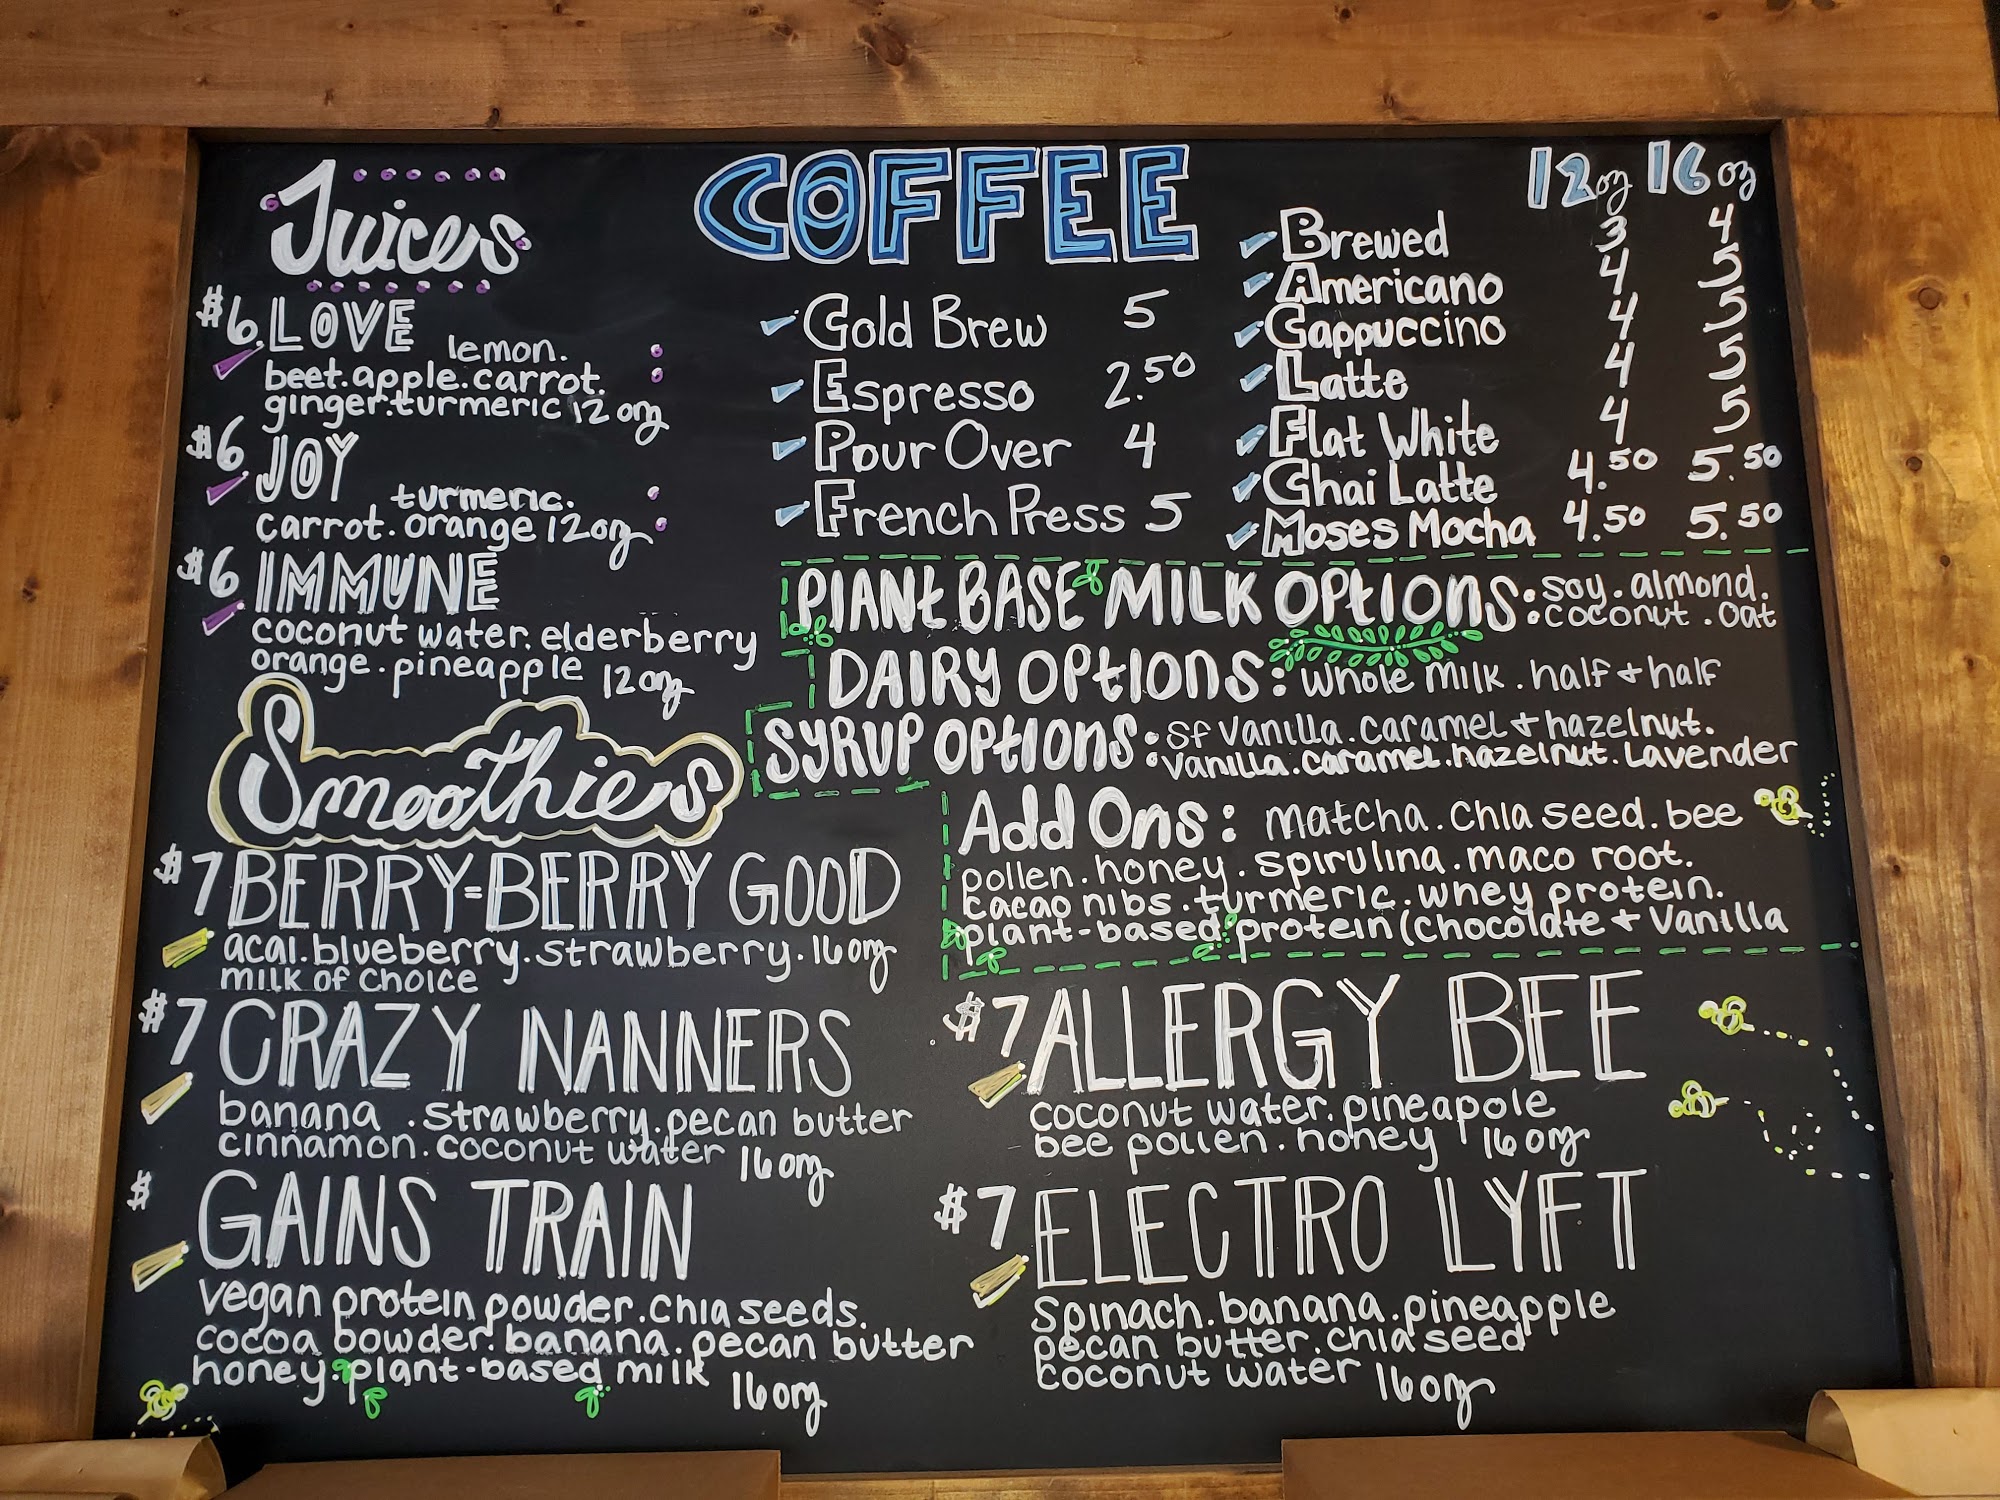 Juices
$6. LOVE
lemon.
beet.apple.carrot.
ginger.turmeric 12 oz
$6. JOY
turmeric.
carrot. orange 12 oz
$6 IMMUNE
coconut water. elderberry
orange.pineapple 12 oz
Smoothies
$7 BERRY-BERRY GOOD
acai.blueberry.strawberry.16 oz
milk of choice
$7 CRAZY NANNERS
banana .strawberry.pecan butter
cinnamon.coconut water 16 oz
$ GAINS TRAIN
vegan protein powder.chia seeds.
cocoa powder.banana.pecan butter
honey.plant-based milk 16 oz
COFFEE
Cold Brew 5
Espresso 2.50
Pour Over 4
French Press 5
12 oz 16 oz
Brewed 3 4
Americano 4 5
Cappuccino 4 5
Latte 4 5
Flat White 4 5
Chai Latte 4.50 5.50
Moses Mocha 4.50 5.50
PLANT BASE MILK OPTIONS: soy.almond.
coconut.oat
DAIRY OPTIONS: whole milk.half + half
SYRUP OPTIONS: SF vanilla.caramel + hazelnut.
vanilla.caramel.hazelnut.Lavender
Add Ons: matcha.chia seed.bee
pollen.honey.spirulina.maco root.
cacao nibs.turmeric.whey protein.
plant-based protein (chocolate + vanilla
$7 ALLERGY BEE
coconut water.pineapole
bee pollen.honey 16 oz
$7 ELECTRO LYFT
Spinach.banana.pineapple
pecan butter.chia seed
coconut water 16 oz